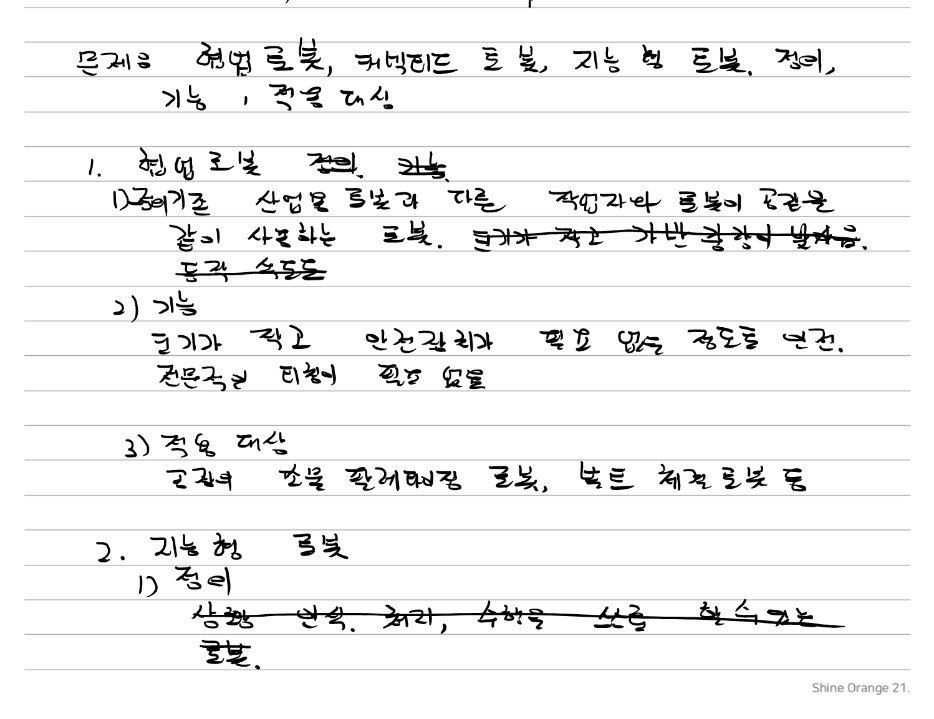 문제는 협업 로봇, 커넥티드 로봇, 지능형 로봇. 정의,
기능, 적용 대상
1. 협업 로봇 정의. 기능.
1) 정의 기존 산업용 로봇과 다른 작업자와 로봇이 공간을
같이 사용하는 로봇. 크기가 작고 가반 중량이 낮음.
동작 속도도
2) 기능
크기가 작고 안전관리가 필요 없는 정도로 안전.
전문적인 티칭이 필요 없음
3) 적용 대상
공장의 소물 팔레타이징 로봇, 볼트 체결 로봇 등
2. 지능형 로봇
1) 정의
상황 인식. 처리, 수행을 스스로 할 수 있는
로봇.
Shine Orange 21.